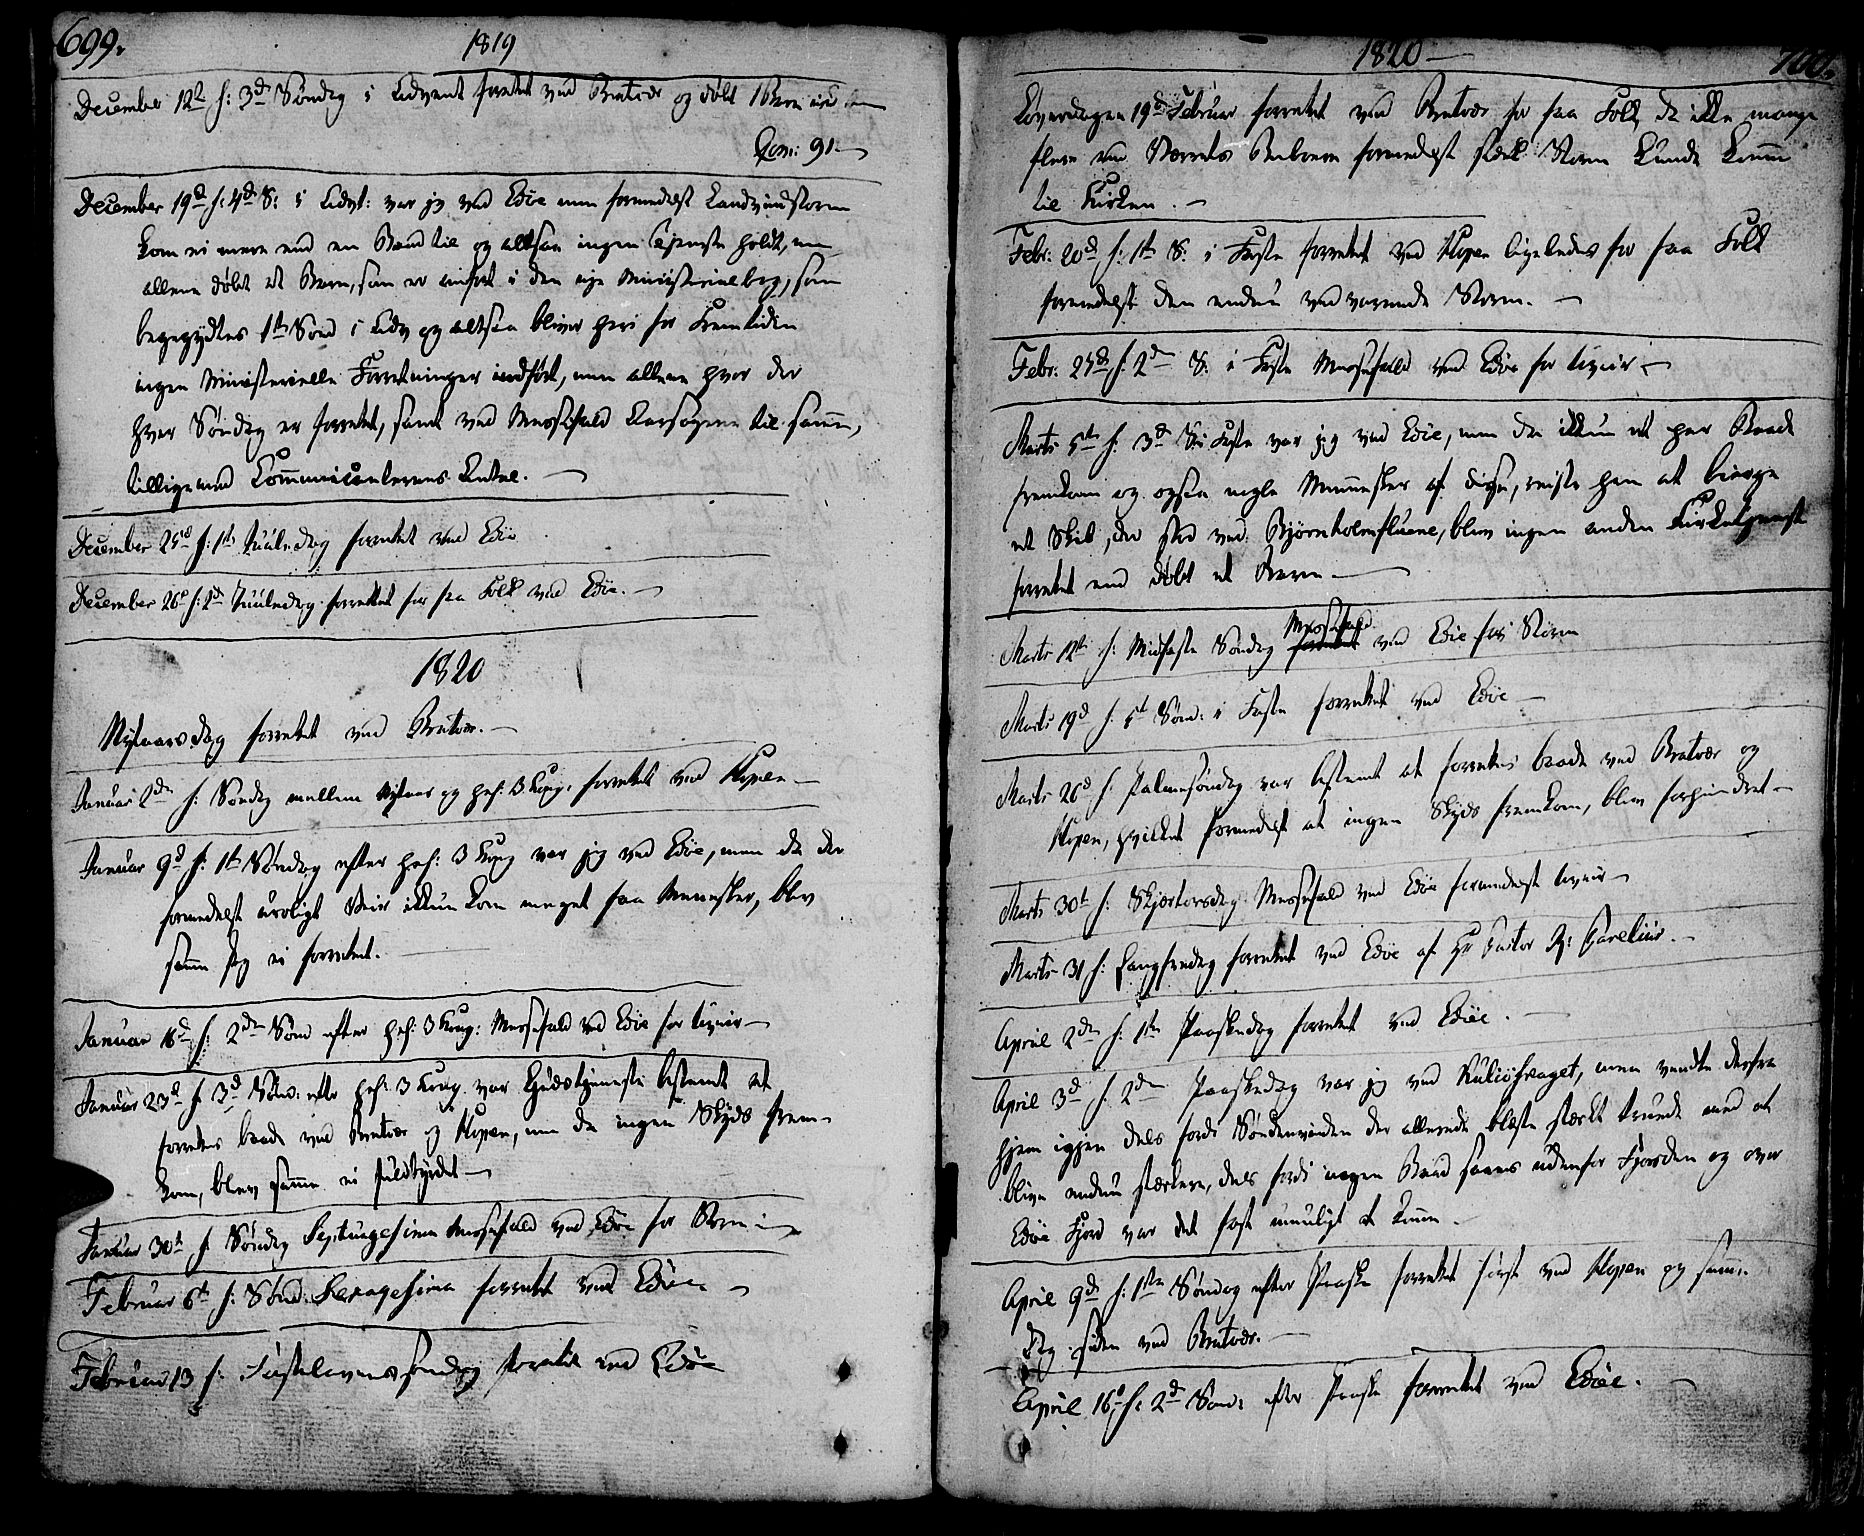 699.
1819
December 12te f: 3d Søndag i Advent forrettet ved Bratvær og døbt 1 Barn
Com: 91 —
December 19d f: 4d S: i Advt: var jeg ved Edöe men formedelst Landvindstorm
kom ei mere end en Baad til og altsaa ingen Tjeneste holdt, men
allene døbt et Barn, som er anført i den nye Ministerialbog, som
begyndtes 1te Sønd i Adv og altsaa bliver heri for Fremtiden
ingen Ministerielle Forretninger indført, men allene hvor der
hver Søndag er forrettet, samt ved Messefald Aarsagen til samme,
tilligemed Communicanternes Antal. —
December 25d f: 1te Juuledag forrettet ved Edöe
December 26d f: 2d Juuledag forrettet for faa Folk ved Edöe. —
1820
Nytaarsdag forrettet ved Bratvær. —
Januar 2den f: Søndag mellem Nytaar og hel: 3 Kong: forrettet ved Hopen —
Januar 9d f: 1te Søndag efter hel: 3 Kong var jeg ved Edöe, men da der
formedelst uroligt Veir ikkun kom meget faa Mennesker, blev
samme Dag ei forrettet.
Januar 16d f: 2den Sønd efter hel: 3 Kong: Messefald ved Edöe for Uveir —
Januar 23d f 3d Sønd: efter hel: 3 Kong. var Gudstjeneste bestemt at
forrettes baade ved Bratvær og Hopen, men da ingen Skyds frem-
kom, blev samme ei fuldbyrdet —
Januar 30te f Søndag Septuagesima Messefald ved Edöe for Storm —
Februar 6te f: Sönd: Sexagesima forrettet ved Edöe. —
Februar 13 f: Fastelavenssøndag forrettet ved Edöe
1820 —
700.
Løverdagen 19d Februar forrettet ved Bratvær for faa Folk, da ikke mange
flere end Værrets Beboere formedelst stærk Storm kunde komme
til Kirken. —
Febr: 20d f: 1te S: i Faste forrettet ved Hopen ligeledes for faa Folk
formedelst den endnu vedvarende Storm. —
Febr: 27d f: 2den S: i Faste Messefald ved Edöe for Uveir —
Marts 5te f: 3d S: i Faste var jeg ved Edöe, men da ikkun et par Baade
fremkom og ogsaa nogle Mennesker af disse, reiste hen at bierge
et Skib, der stod ved Bjørnholmfluene, blev ingen anden Kirketjeneste
forrettet end døbt et Barn. —
Marts 12te f: Midfaste Søndag Messefald ved Edöe for Storm
Marts 19d f: 5te Sønd: i Faste forrettet ved Edöe —
Marts 26d f Palmesøndag var bestemt at forrettes baade ved Bratvær og
Hopen, hvilket formedelst at ingen Skyds fremkom, blev forhindret —
Marts 30te f: Skjærtorsdag Messefald ved Edöe formedelst Uveir —
Marts 31 f: Langfredag forrettet ved Edöe af Hr Pastor R: Parelius. —
April 2den f: 1te Paaskedag forrettet ved Edöe. —
April 3d f 2den Paaskedag var jeg ved Kuliöhraget, men vendte derfra
hjem igjen dels fordi Søndenvinden der allerede blæste stærkt truede med at
blive endnu stærkere, dels fordi ingen Baad saaes udenfor Fjorden og over
Edöe Fjord var det fast umuligt at komme —
April 9d f: 1ste Søndag efter Paaske forrettet først ved Hopen og samme
Dag siden ved Bratvær. —
April 16d f: 2d Sönd: efter Paaske forrettet ved Edöe. —